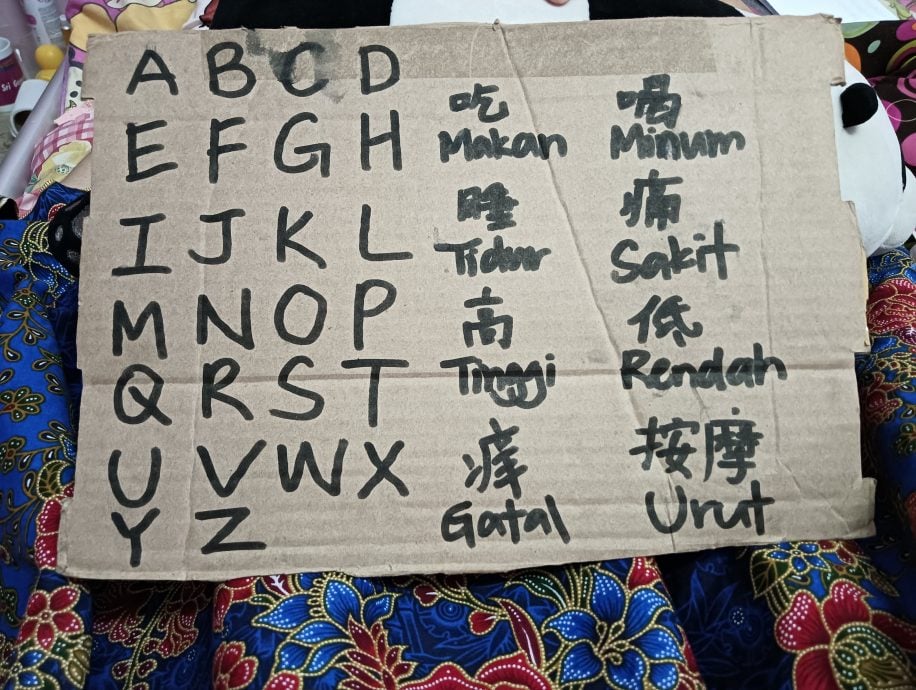 A B C D
E F G H
I J K L
M N O P
Q R S T
U V W X
Y Z
吃 喝
Makan Minum
睡 痛
Tidur Sakit
高 低
Tinggi Rendah
痒 按摩
Gatal Urut